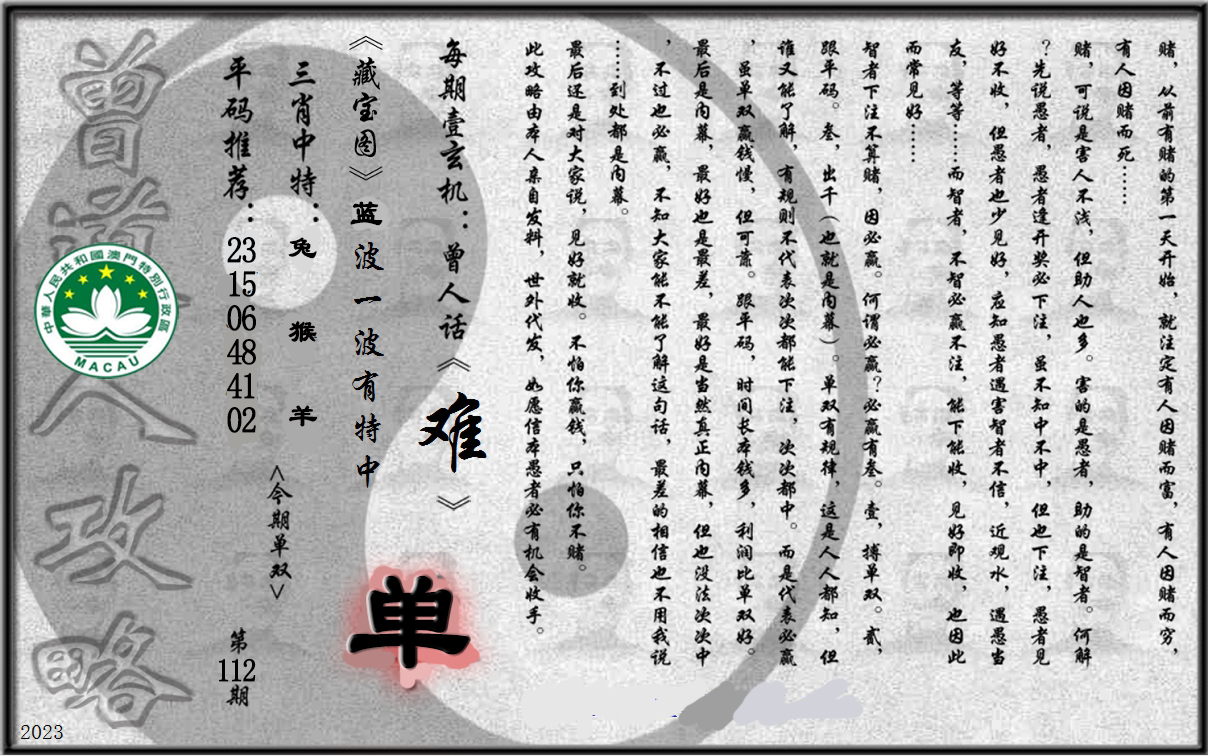 赌，从前有赌的第一天开始，就注定有人因赌而富，有人因赌而穷，
有人因赌而死……
赌，可说是害人不浅，但助人也多。害的是愚者，助的是智者。何解
？先说愚者，愚者逢开奖必下注，虽不知中不中，但也下注，愚者见
好不收，但愚者也少见好，应知愚者遇害智者不信，近观水，遇愚当
友，等等……而智者，不智必赢不注，能下能收，见好即收，也因此
而常见好……
智者下注不算赌，因必赢。何谓必赢？必赢有叁。壹，搏单双。贰，
跟平码。叁，出千（也就是内幕）。单双有规律，这是人人都知，但
谁又能了解，有规则不代表次次都能下注，次次都中。而是代表必赢
，虽单双赢钱慢，但可靠。跟平码，时间长本钱多，利润比单双好。
最后是内幕，最好也是最差，最好是当然真正内幕，但也没法次次中
，不过也必赢，不知大家能不能了解这句话，最差的相信也不用我说
……到处都是内幕。
最后还是对大家说，见好就收。不怕你赢钱，只怕你不赌。
此攻略由本人亲自发料，世外代发，如愿信本愚者必有机会收手。
每期壹玄机：曾人话《难》
《藏宝图》蓝波一波有特中
单
三肖中特：兔 猴 羊
<今期单双>
平码推荐：23 15 06 48 41 02
第112期
曾道人攻略
中華人民共和國澳門特別行政區
MACAU
2023